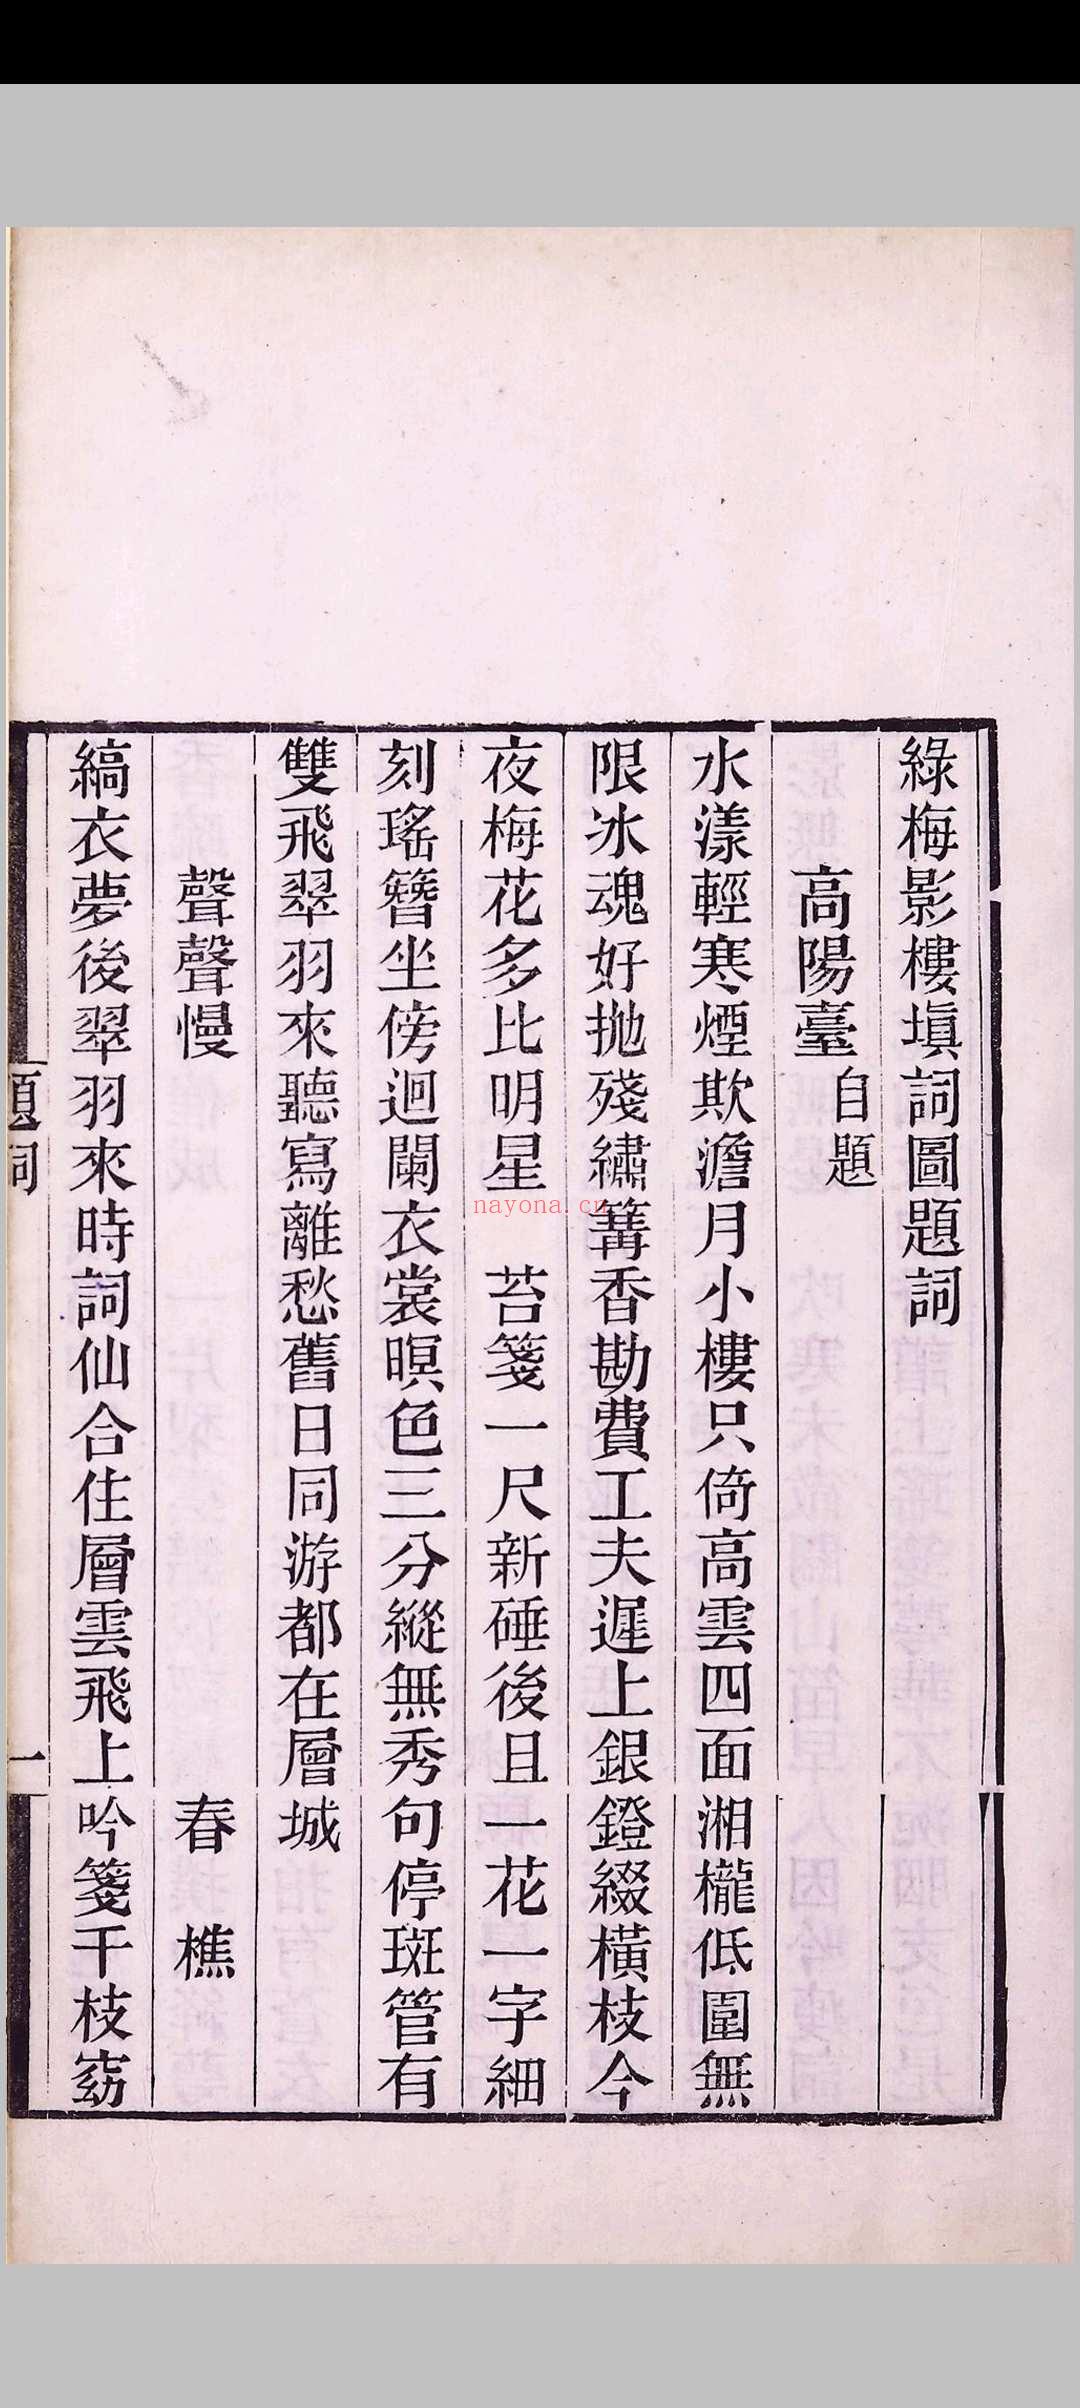 綠梅影樓塡詞圖題詞
高陽臺 自題
水漾輕寒煙欺澹月小樓只倚高雲四面湘櫳低圍無
限冰魂好拋殘繡篝香勘費工夫遲上銀鐙綴橫枝今
夜梅花多比明星 苔箋一尺新硾後且一花一字細
刻瑤簪坐傍迴闌衣裳暝色三分縱無秀句停斑管有
雙飛翠羽來聽寫離愁舊日同游都在層城
聲聲慢 春樵
縞衣夢後翠羽來時詞仙合住層雲飛上吟箋千枝窈
題詞
一
nayona.cn